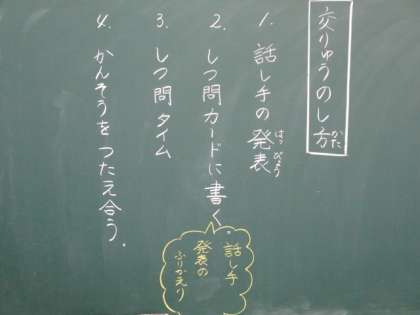 交りゅうのし方
かた
1. 話し手の発表
はっぴょう
2. しつ問カードに書く。
話し手
発表の
ふりかえり
3. しつ問タイム
4. かんそうをつたえ合う.